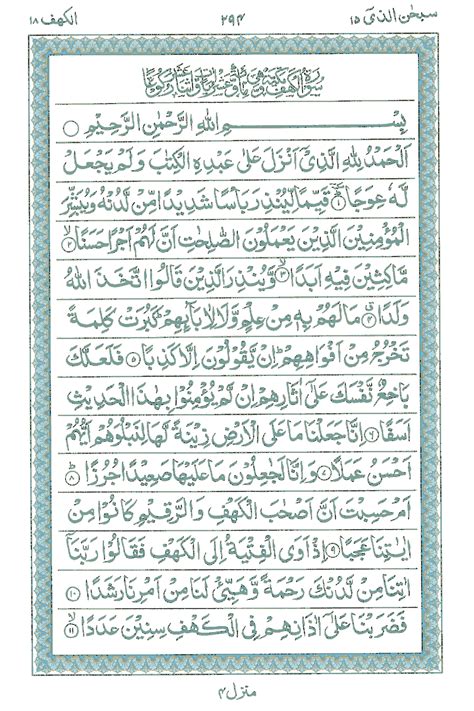 سبحٰن الذیٓ ١٥ ٢٩٤ الكهف ١٨
بِسْمِ اللهِ الرَّحْمٰنِ الرَّحِيْمِ
اَلْحَمْدُ لِلّٰهِ الَّذِيْٓ اَنْزَلَ عَلٰى عَبْدِهِ الْكِتٰبَ وَلَمْ يَجْعَلْ
لَّهٗ عِوَجًا ١ قَيِّمًا لِّيُنْذِرَ بَاْسًا شَدِيْدًا مِّنْ لَّدُنْهُ وَيُبَشِّرَ
الْمُؤْمِنِيْنَ الَّذِيْنَ يَعْمَلُوْنَ الصّٰلِحٰتِ اَنَّ لَهُمْ اَجْرًا حَسَنًا ٢
مَّاكِثِيْنَ فِيْهِ اَبَدًا ٣ وَّيُنْذِرَ الَّذِيْنَ قَالُوا اتَّخَذَ اللهُ
وَلَدًا ٤ مَا لَهُمْ بِهٖ مِنْ عِلْمٍ وَّلَا لِاٰبَآئِهِمْ كَبُرَتْ كَلِمَةً
تَخْرُجُ مِنْ اَفْوَاهِهِمْ اِنْ يَّقُوْلُوْنَ اِلَّا كَذِبًا ٥ فَلَعَلَّكَ
بَاخِعٌ نَّفْسَكَ عَلٰٓى اٰثَارِهِمْ اِنْ لَّمْ يُؤْمِنُوْا بِهٰذَا الْحَدِيْثِ
اَسَفًا ٦ اِنَّا جَعَلْنَا مَا عَلَى الْاَرْضِ زِيْنَةً لَّهَا لِنَبْلُوَهُمْ اَيُّهُمْ
اَحْسَنُ عَمَلًا ٧ وَاِنَّا لَجٰعِلُوْنَ مَا عَلَيْهَا صَعِيْدًا جُرُزًا ٨
اَمْ حَسِبْتَ اَنَّ اَصْحٰبَ الْكَهْفِ وَالرَّقِيْمِ كَانُوْا مِنْ
اٰيٰتِنَا عَجَبًا ٩ اِذْ اَوَى الْفِتْيَةُ اِلَى الْكَهْفِ فَقَالُوْا رَبَّنَآ
اٰتِنَا مِنْ لَّدُنْكَ رَحْمَةً وَّهَيِّئْ لَنَا مِنْ اَمْرِنَا رَشَدًا ١٠
فَضَرَبْنَا عَلٰٓى اٰذَانِهِمْ فِي الْكَهْفِ سِنِيْنَ عَدَدًا ١١
منزل ٤